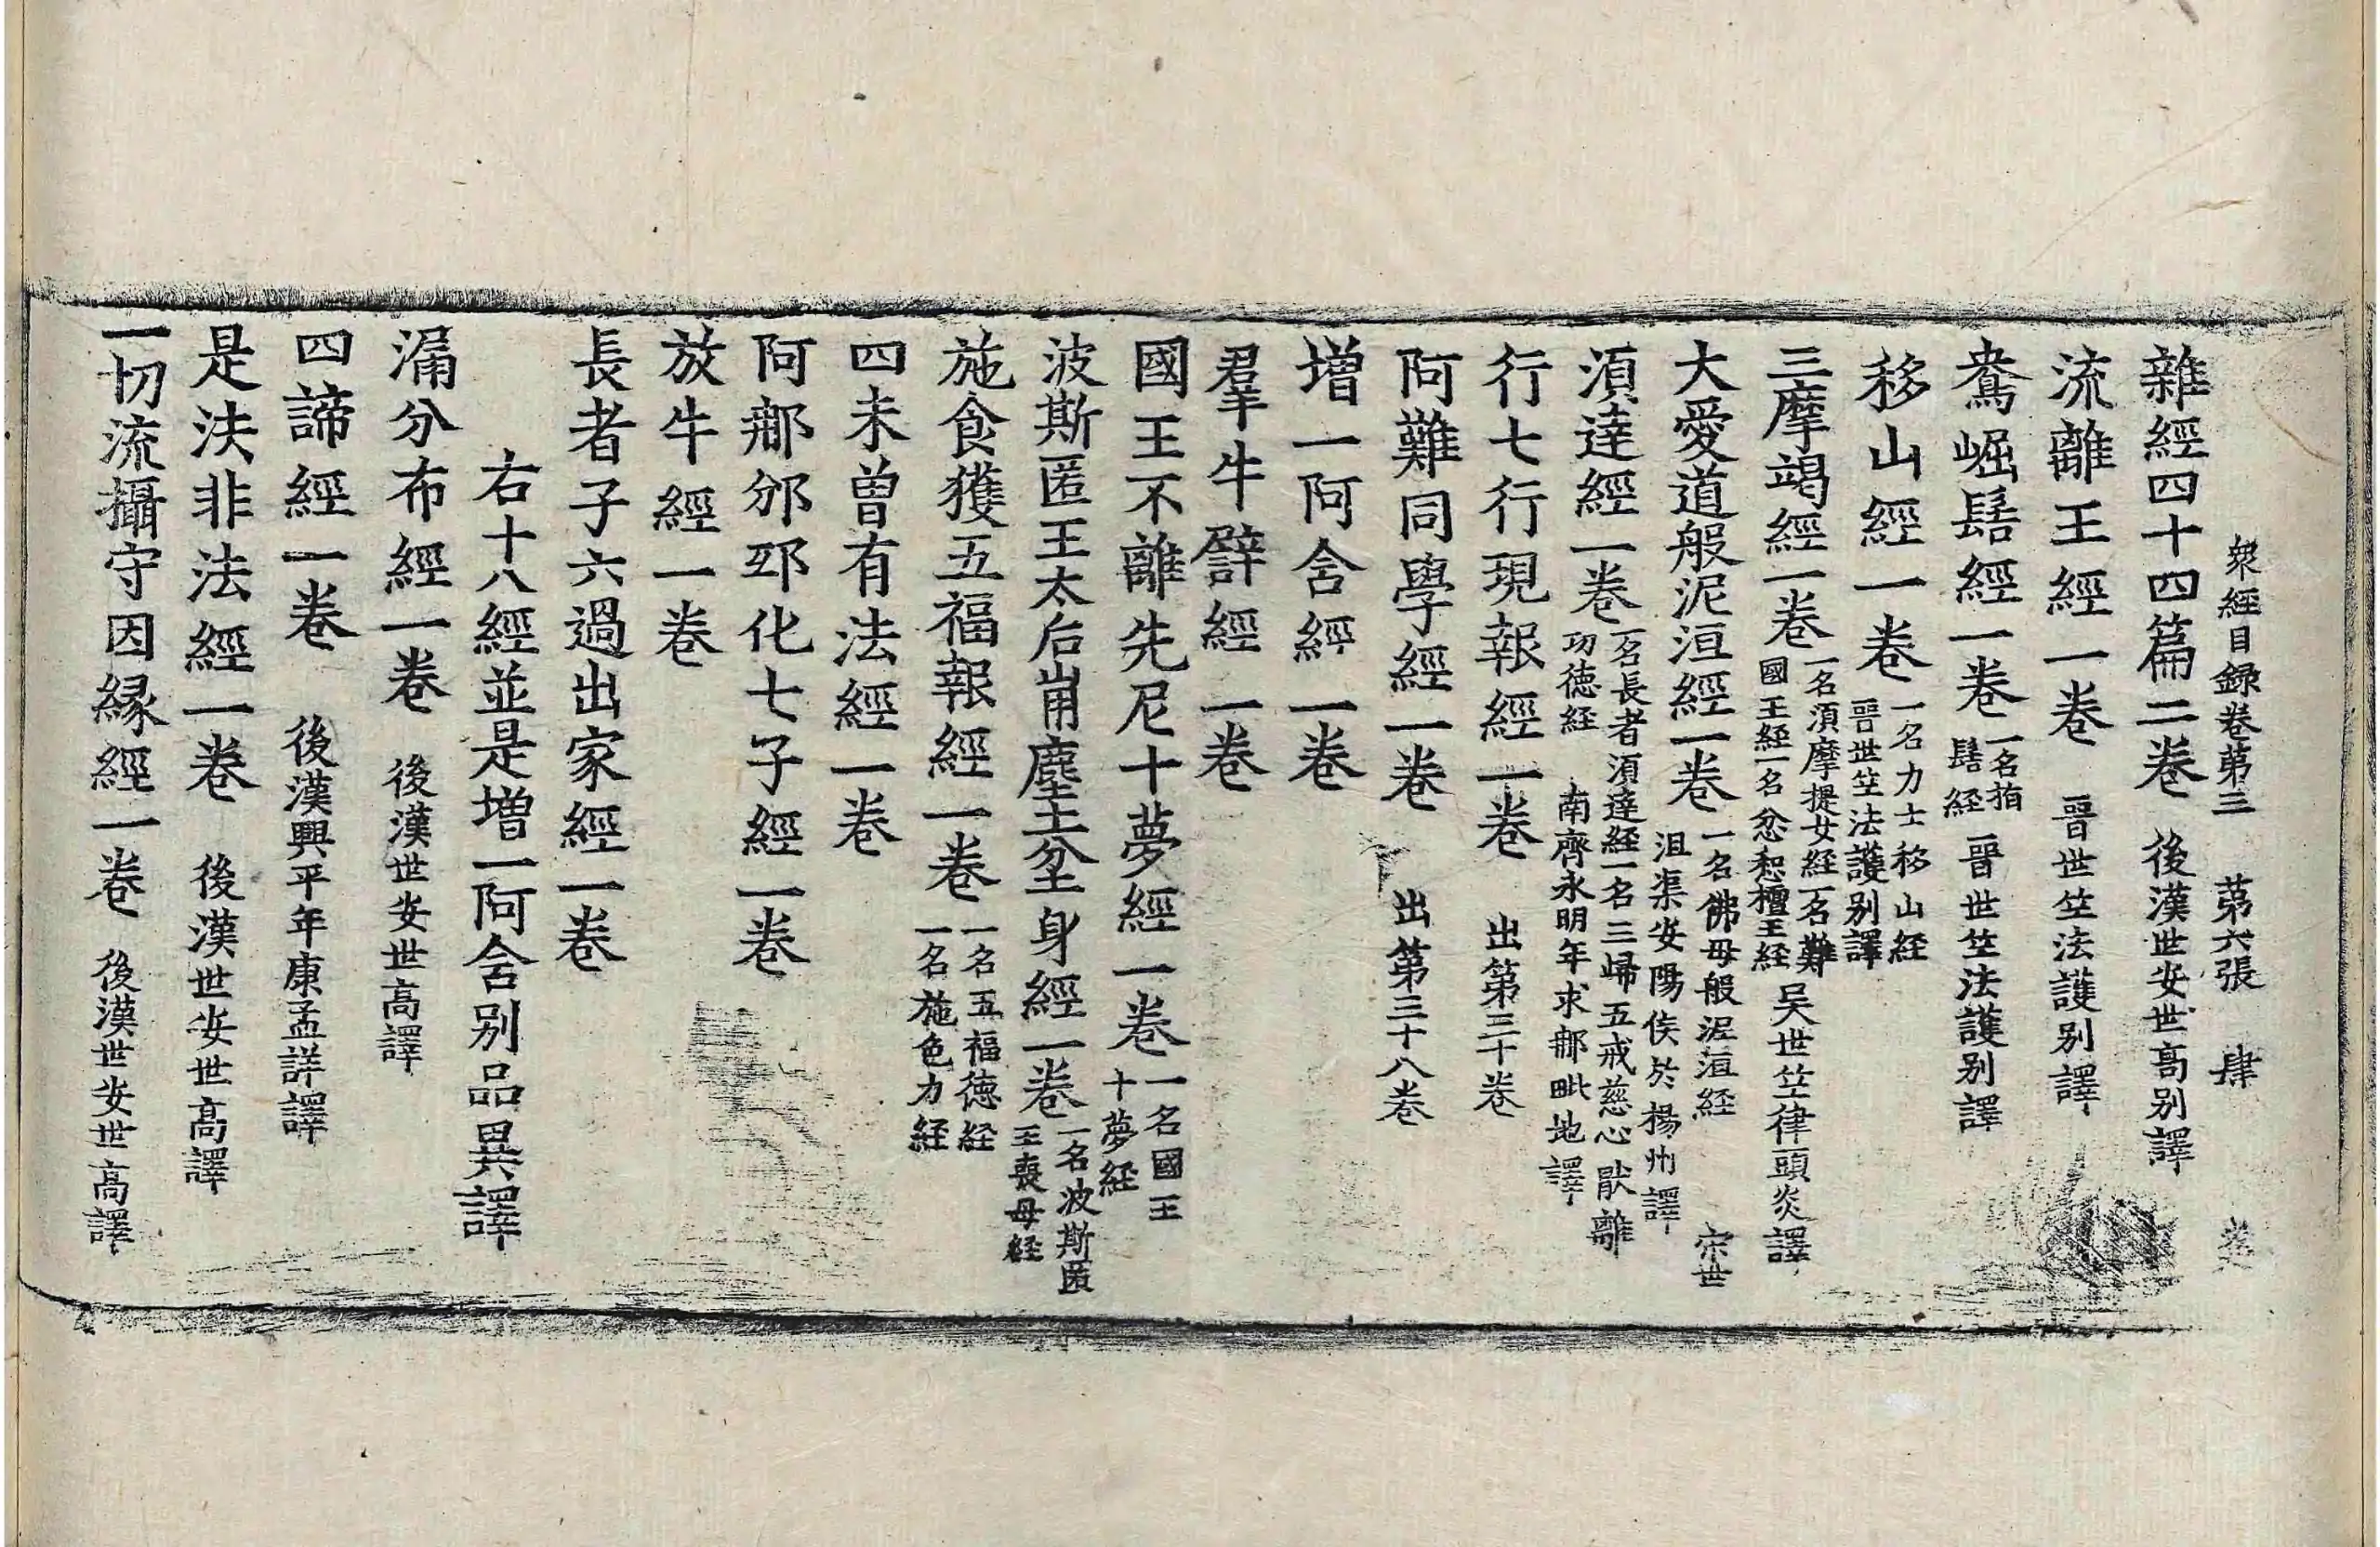 衆經目録卷第三　第六張　肆
雜經四十四篇二卷　後漢世安世高別譯
流離王經一卷　晉世竺法護別譯
鴦崛髻經一卷　一名指髻経　晉世竺法護別譯
移山經一卷　一名力士移山経　晉世竺法護別譯
三摩竭經一卷　一名須摩提女経一名難國王経一名忿惒檀王経　吴世竺律頭炎譯
大愛道般泥洹經一卷　一名佛母般泥洹経　宋世沮渠安陽侯於楊州譯
須達經一卷　一名長者須達経一名三歸五戒慈心猒離功徳経　南齊永明年求那毗地譯
行七行現報經一卷　出第三十卷
阿難同學經一卷　出第三十八卷
增一阿含經一卷
羣牛譬經一卷
國王不離先尼十夢經一卷　一名國王十夢経
波斯匿王太后崩塵土坌身經一卷　一名波斯匿王喪母経
施食獲五福報經一卷　一名五福徳経一名施色力経
四未曾有法經一卷
阿那邠邳化七子經一卷
放牛經一卷
長者子六過出家經一卷
右十八經並是增一阿含別品異譯
漏分布經一卷　後漢世安世高譯
四諦經一卷　後漢興平年康孟詳譯
是法非法經一卷　後漢世安世高譯
一切流攝守因緣經一卷　後漢世安世高譯